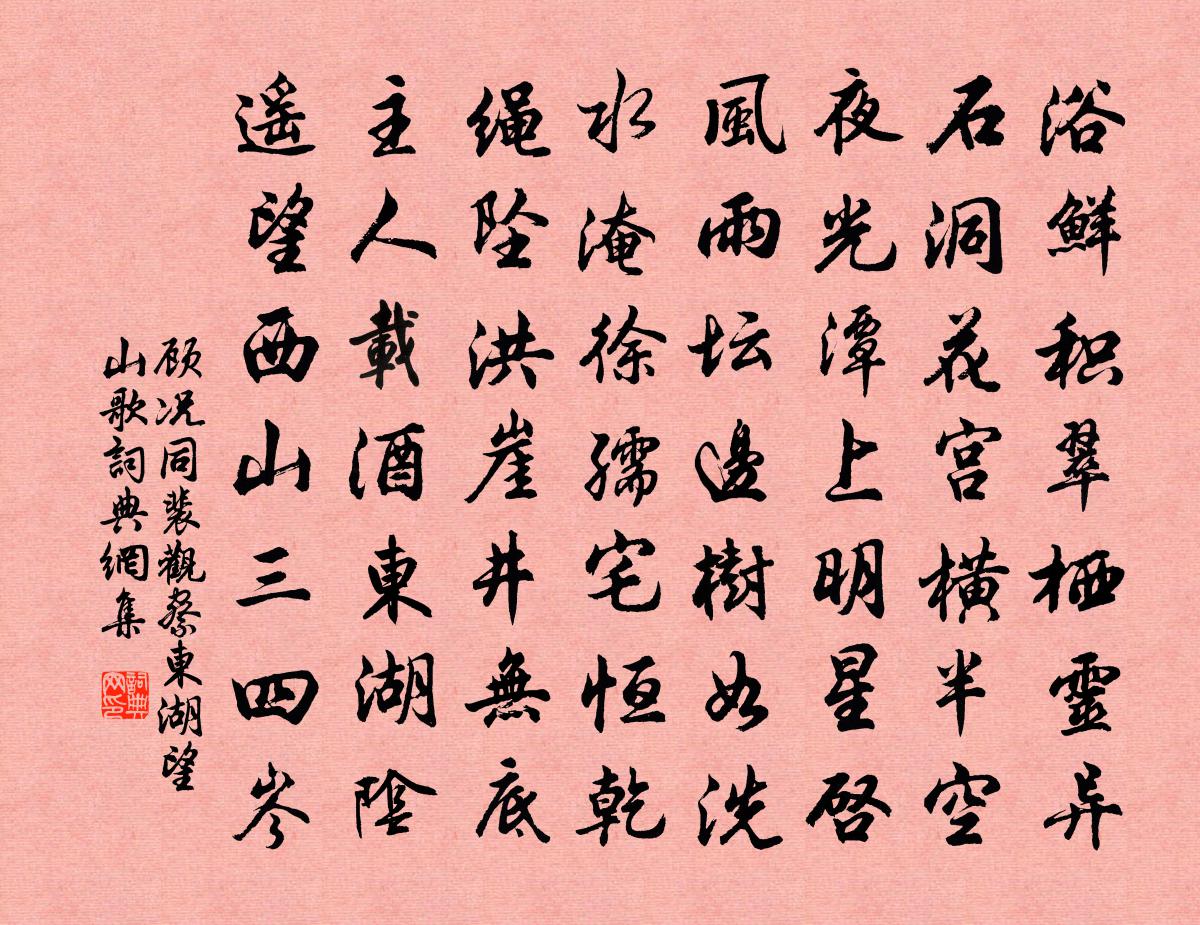 浴鮮积翠栖靈异
石洞花宫橫半空
夜光潭上明星启
風雨坛邊樹如洗
水淹徐孺宅恒乾
绳坠洪崖井無底
主人載酒東湖陰
遥望西山三四岑
顾况同裴觀察東湖望
山歌詞典網集
詞典网印